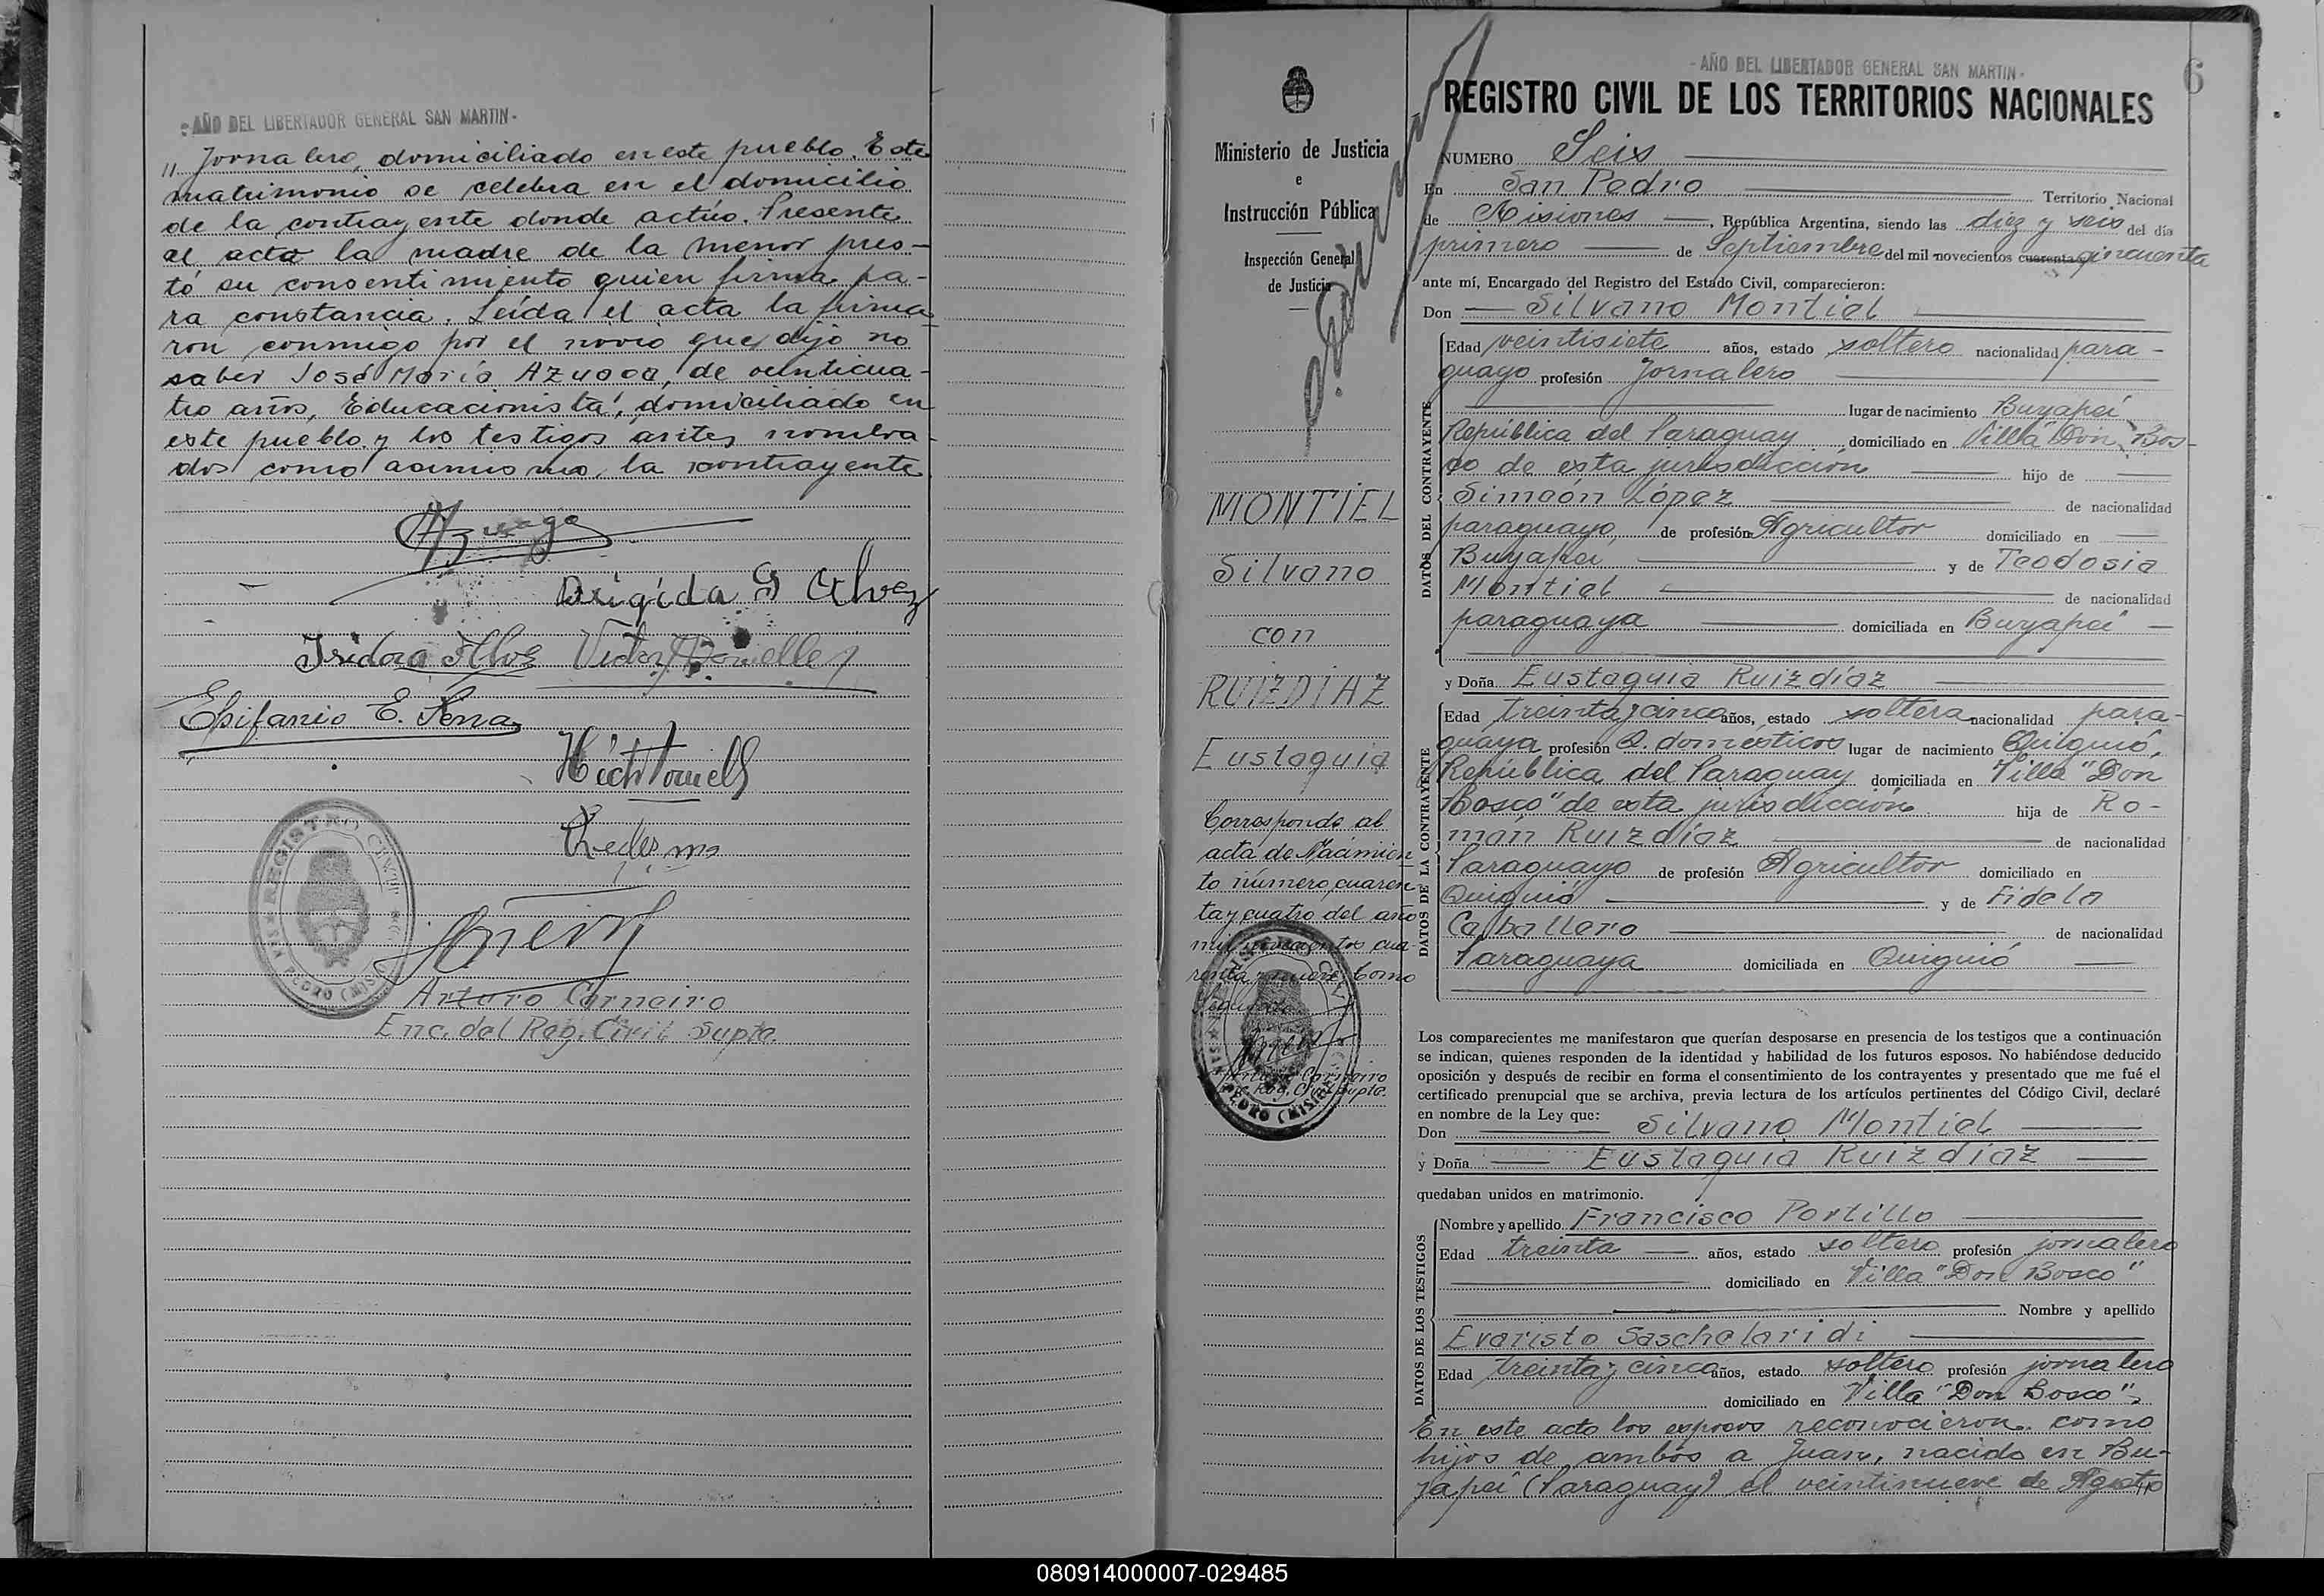 - AÑO DEL LIBERTADOR GENERAL SAN MARTIN -
" Jornalero, domiciliado en este pueblo. Este
matrimonio se celebra en el domicilio
de la contrayente donde actúo. Presente
al acta la madre de la menor pres-
tó su consentimiento quien firma pa-
ra constancia. Leída el acta la firma
ron conmigo por el novio que dijo no
saber José María Azuaga, de veinticua-
tro años, Educacionista, domiciliado en
este pueblo y los testigos antes nombra-
dos como asimismo, la contrayente
Azuaga
Brígida G Alvez
Isidora Alvez
Epifanio E. Sena
Ledesma
REGISTRO CIVIL
PEDRO (MIS
Arturo Carneiro
Enc. del Reg. Civil Supte.
Ministerio de Justicia
e
Instrucción Pública
Inspección General
de Justicia
MONTIEL
Silvano
con
RUIZDIAZ
Eustaquia
Corresponde al
acta de Nacimien
to número cuaren
ta y cuatro del año
mil novecientos cua-
renta y nueve. Como
Arturo Carneiro
Reg. Civil Supte.
PEDRO (MIS
6
- AÑO DEL LIBERTADOR GENERAL SAN MARTIN -
REGISTRO CIVIL DE LOS TERRITORIOS NACIONALES
NUMERO Seis
En San Pedro Territorio Nacional
de Misiones, República Argentina, siendo las diez y seis del día
primero de Septiembre del mil novecientos cuarenta y cincuenta
ante mí, Encargado del Registro del Estado Civil, comparecieron:
Don Silvano Montiel
DATOS DEL CONTRAYENTE
Edad veintisiete años, estado soltero nacionalidad para-
guayo profesión Jornalero
lugar de nacimiento Buyapeí
República del Paraguay domiciliado en Villa "Don Bos-
co de esta jurisdicción hijo de
Simeón López de nacionalidad
paraguayo, de profesión Agricultor domiciliado en
Buyapeí y de Teodosia
Montiel de nacionalidad
paraguaya domiciliada en Buyapeí
y Doña Eustaquia Ruizdíaz
DATOS DE LA CONTRAYENTE
Edad treinta y cinco años, estado soltera nacionalidad para-
guaya profesión Q. domesticos lugar de nacimiento Quiquió,
República del Paraguay domiciliada en Villa "Don
Bosco" de esta jurisdicción hija de Ro-
mán Ruizdíaz de nacionalidad
Paraguayo de profesión Agricultor domiciliado en
Quiquió y de Fidela
Caballero de nacionalidad
Paraguaya domiciliada en Quiquió
Los comparecientes me manifestaron que querían desposarse en presencia de los testigos que a continuación
se indican, quienes responden de la identidad y habilidad de los futuros esposos. No habiéndose deducido
oposición y después de recibir en forma el consentimiento de los contrayentes y presentado que me fué el
certificado prenupcial que se archiva, previa lectura de los artículos pertinentes del Código Civil, declaré
en nombre de la Ley que:
Don Silvano Montiel
y Doña Eustaquia Ruizdíaz
quedaban unidos en matrimonio.
DATOS DE LOS TESTIGOS
Nombre y apellido Francisco Portillo
Edad treinta años, estado soltero profesión jornalero
domiciliado en Villa "Don Bosco"
Nombre y apellido
Evaristo Saschalaridi
Edad treinta y cinco años, estado soltero profesión jornalero
domiciliado en Villa "Don Bosco",
En este acto los esposos reconocieron como
hijos de ambos a Juan, nacido en Bu-
yapeí (Paraguay) el veintinueve de Agosto
080914000007-029485